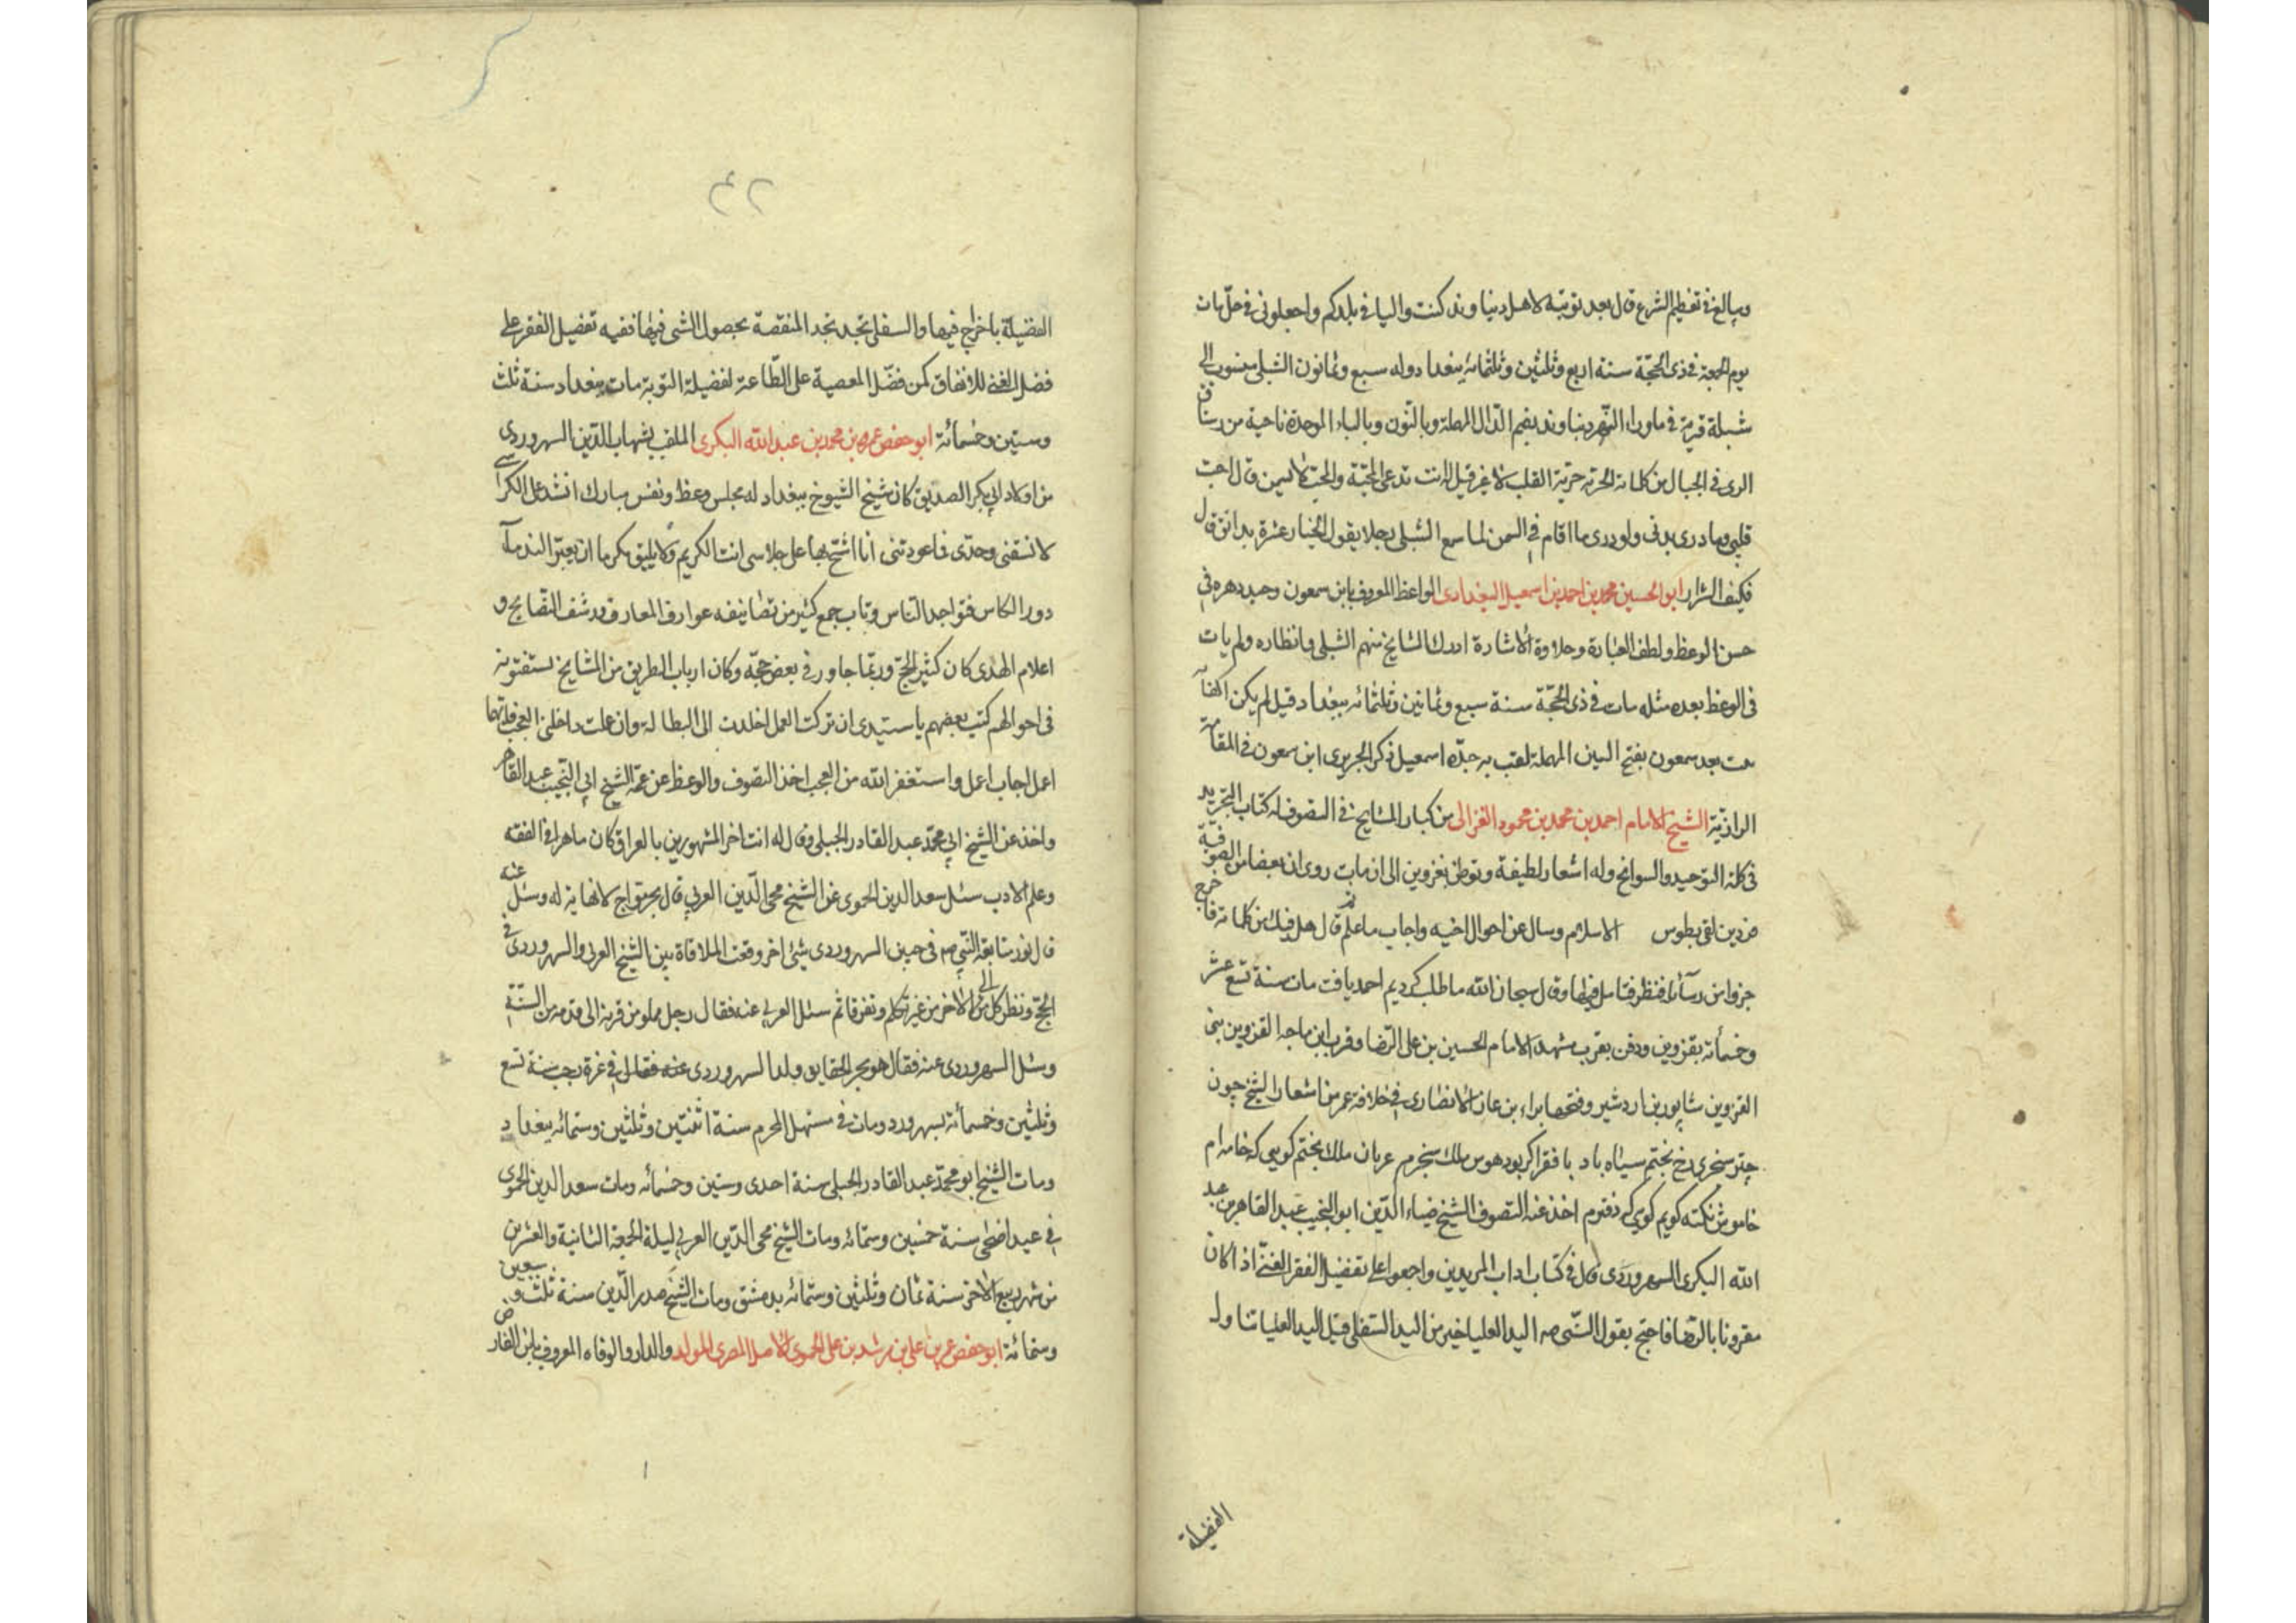 ويبالغ في تعظيم الشرع قال بعد توبته لاهل دنباوند كنت واليا في بلدكم واجعلوني في حل مات
يوم الجمعة في ذى الحجّة سنة اربع وثلثين وثلثمائه ببغداد وله سبع وثمانون الشبلى منسوب الى
شبلة قرية في ماوراء النّهر دنباوند بضم الدّال المهملة وبالنّون وبالباء الموحدة ناحية من رستاق
الرى في الجبال من كلماته الحرّية حرّية القلب لا غير قيل له انت تدعى المحبّة والمحب لا يسمن قال احب
قلبى وما درى بدنى ولو درى ما اقام في السمن لما سمع الشبلى رجلا يقول الخيار عشرة بدانق قال
فكيف الشرار ابو الحسين محمد بن احمد بن اسمعيل البغدادى الواعظ المعروف بابن سمعون وحيد دهره في
حسن الوعظ ولطف العبارة وحلاوة الاشارة ادرك المشايخ منهم الشبلى وانظاره ولم يات
في الوعظ بعده مثله مات في ذى الحجّة سنة سبع وثمانين وثلثمائه ببغداد قيل لم يكن
بعد سمعون بفتح السين المهملة لقب به جدّه اسمعيل ذكر الحريرى ابن سمعون في المقامة
الرازيّة الشيخ الامام احمد بن محمد بن محمود الغزالى من كبار المشايخ في التصوف له كتاب التجريد
في كلمة التوحيد والسوانح وله اشعار لطيفة وتوطن بقزوين الى ان مات روى ان بعضا من الصوفية
من قزوين لقى بطوس الاسلام وسال عن احوال اخيه واجاب ما علم ثم قال هل فيك من كلماته فاخرج
جزوا من رسالته فنظر فتامل فيها وقال سبحان الله ما طلب كرديم احمد يافت مات سنة تسع عشر
وخمسأته بقزوين ودفن بقرب مشهد الامام الحسين بن على الرّضا وقرب ابن ماجه القزوين بنى
القزوين شاپور بن اردشير وفتحها براء بن عازب الانصارى في خلافة عمر من اشعار الشيخ چون
چتر سنجرى رخ بختم سياه باد با فقر اكر بود هوس ملك سنجرم عريان ملك بختم كويى كه خامه ام
خاموش نكته كويم كويى كه دفترم اخذ عنه التصوف الشيخ ضياء الدّين ابو النجيب عبد القاهر بن عبد
الله البكرى السهروردى قال في كتاب اداب المريدين واجمعوا على تفضيل الفقر الغنّى اذا كان
مقرونا بالرّضا فاحتج بقول النّبى صه اليد العليا خير من اليد السّفلى قيل اليد العليا تناول
الفضيلة
٤٢
الفضيلة باخراج فيها والسفلى تجد المنقصة بحصول الشى فيها ففيه تفضيل الفقر على
فضل الغنى للانفاق كمن فضّل المعصية على الطّاعة لفضيلة التّوبة مات ببغداد سنة ثلث
وستين وخمسائة ابو حفص عمر بن محمد بن عبد الله البكرى الملقب بشهاب الدّين السهروردى
من اولاد ابى بكر الصديق كان شيخ الشيوخ ببغداد له مجلس وعظ ونفس مبارك انشد على الكراسى
لا تسقنى وحدى فما عودتنى انا اشح بها على جلاسى انت الكريم ولا يليق تكرما ان يعبر الندماء
دور الكاس فتواجد الناس وتاب جمع كثير من تصانيفه عوارف المعارف ورشف النصّايح و
اعلام الهدى كان كثير الحجّ وربّما جاور في بعض حجّه وكان ارباب الطريق من المشايخ يستفتونه
في احوالهم كتب بعضهم يا سيّدى ان تركت العمل اخلدت الى البطالة وان عملت داخلنى العجب فايّهما
اعمل اجاب اعمل واستغفر الله من العجب اخذ التصوف والوعظ عن عمّه الشيخ ابى النّجيب عبد القاهر
واخذ عن الشيخ ابى محمّد عبد القادر الجبلى وقال له انت اخر المشهورين بالعراق كان ماهرا في الفقه
وعلم الادب سئل سعد الدين الحموى عن الشيخ محى الدّين العربى قال بحر موّاج لا نهاية له وسئل عنه
قال نور متابعة النّبى صم في جبين السهروردى شئ اخر وقعت الملاقاة بين الشيخ العربى والسهروردى في
الحجّ ونظر كل منهما الى الاخر من غير تكلم وتفرقا ثم سئل العربى عنه فقال رجل مملو من قرنه الى قدمه من السّنّة
وسئل السهروردى عنه فقال هو بحر الحقايق ولد السهروردى في غرة رجب سنة تسع
وثلثين وخمسأته بسهرورد ومات في مستهل المحرم سنة اثنتين وثلثين وستمائه ببغداد
ومات الشيخ ابو محمّد عبد القادر الجبلى سنة احدى وستين وخمسائه ومات سعد الدين الحموى
في عيد اضحى سنة خمسين وستمائه ومات الشيخ محى الدّين العربى ليلة الجمعة الثانية والعشرين
من شهر ربيع الاخر سنة ثمان وثلثين وستمائه بدمشق ومات الشيخ صدر الدّين سنة ثلث وسبعين
وستمائة ابو حفص عمر بن على بن مرشد بن على الحموى الاصل المصرى المولد والدار والوفاه المعروف بابن الفارض